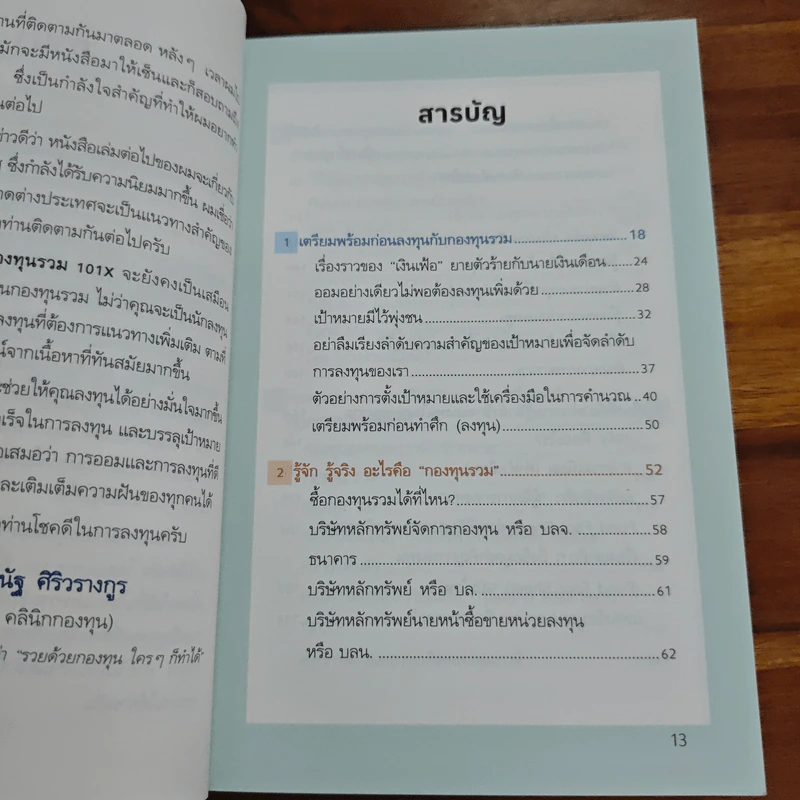 านที่ติดตามกันมาตลอด หลังๆ
มักจะมีหนังสือมาให้เซ็นและก็สอบถาม
ซึ่งเป็นกำลังใจสำคัญที่ทำให้ผมอยาก
นต่อไป
่าวดีว่า หนังสือเล่มต่อไปของผมจะเกี่ยวกับ
ซึ่งกำลังได้รับความนิยมมากขึ้น ผมเชื่อว่า
าดต่างประเทศจะเป็นแนวทางสำคัญของ
งท่านติดตามกันต่อไปครับ
องทุนรวม 101X จะยังคงเป็นเสมือน
นกองทุนรวม ไม่ว่าคุณจะเป็นนักลงทุน
ลงทุนที่ต้องการแนวทางเพิ่มเติม ตามที่
น์จากเนื้อหาที่ทันสมัยมากขึ้น
ะช่วยให้คุณลงทุนได้อย่างมั่นใจมากขึ้น
เร็จในการลงทุน และบรรลุเป้าหมาย
อเสมอว่า การออมและการลงทุนที่ดี
และเติมเต็มความฝันของทุกคนได้
งท่านโชคดีในการลงทุนครับ
นัฐ ศิริวรางกูร
คลินิกกองทุน)
่า "รวยด้วยกองทุน ใครๆ ก็ทำได้"
สารบัญ
1 เตรียมพร้อมก่อนลงทุนกับกองทุนรวม.....18
เรื่องราวของ "เงินเฟ้อ" ยายตัวร้ายกับนายเงินเดือน.....24
ออมอย่างเดียวไม่พอต้องลงทุนเพิ่มด้วย.....28
เป้าหมายมีไว้พุ่งชน.....32
อย่าลืมเรียงลำดับความสำคัญของเป้าหมายเพื่อจัดลำดับ
การลงทุนของเรา.....37
ตัวอย่างการตั้งเป้าหมายและใช้เครื่องมือในการคำนวณ..40
เตรียมพร้อมก่อนทำศึก (ลงทุน).....50
2 รู้จัก รู้จริง อะไรคือ "กองทุนรวม".....52
ซื้อกองทุนรวมได้ที่ไหน?.....57
บริษัทหลักทรัพย์จัดการกองทุน หรือ บลจ. .....58
ธนาคาร.....59
บริษัทหลักทรัพย์ หรือ บล. .....61
บริษัทหลักทรัพย์นายหน้าซื้อขายหน่วยลงทุน
หรือ บลน. .....62
13